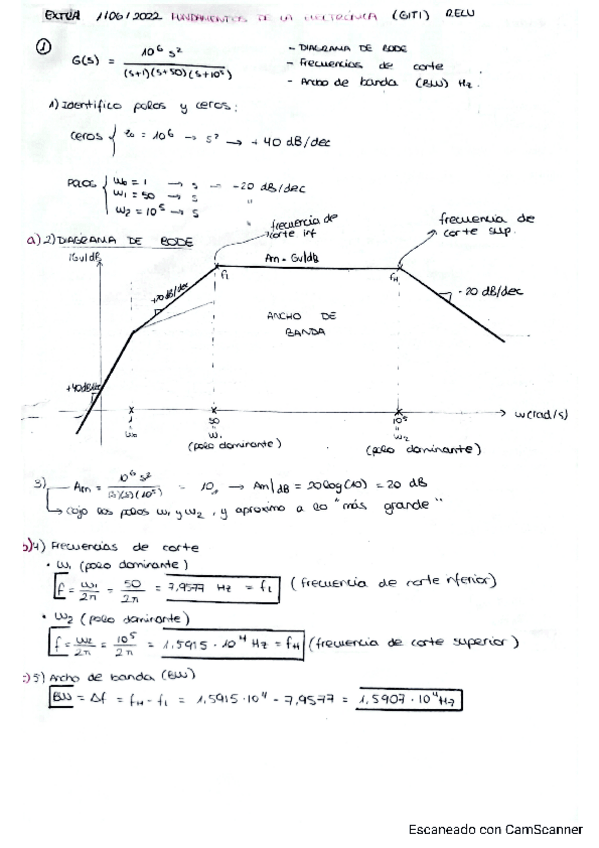 EXTRA 1/06/2022 FUNDAMENTOS DE LA ELECTRÓNICA (GITI) RELU
① G(s) = 10⁶ s² / (s+1)(s+50)(s+10⁵)
- DIAGRAMA DE BODE
- Frecuencias de corte
- Ancho de banda (BW) Hz.
1) Identifico polos y ceros:
ceros { z₀ = 10⁶ → s² → + 40 dB/dec
POLOS { W₀ = 1 → s → -20 dB/dec
W₁ = 50 → s "
W₂ = 10⁵ → s "
a) 2) DIAGRAMA DE BODE
frecuencia de corte inf
frecuencia de corte sup.
|Gv|dB
Am = Gv|dB
fL
fH
+20dB/dec
- 20 dB/dec
ANCHO DE BANDA
+40dB/dec
1 50 10⁵ → w(rad/s)
W₀ W₁ W₂
(polo dominante) (polo dominante)
3) Am = 10⁶ s² / (s)(s)(10⁵) = 10 → Am|dB = 20log(10) = 20 dB
↳ cojo los polos w₁ y w₂, y aproximo a lo "más grande"
b) 4) Frecuencias de corte
• W₁ (polo dominante)
f = W₁/2π = 50/2π = 7,9577 Hz = fL (frecuencia de corte inferior)
• W₂ (polo dominante)
f = W₂/2π = 10⁵/2π = 1,5915 · 10⁴ Hz = fH (frecuencia de corte superior)
c) 5) Ancho de banda (BW)
BW = Δf = fH - fL = 1,5915·10⁴ - 7,9577 = 1,5907 · 10⁴ Hz
Escaneado con CamScanner